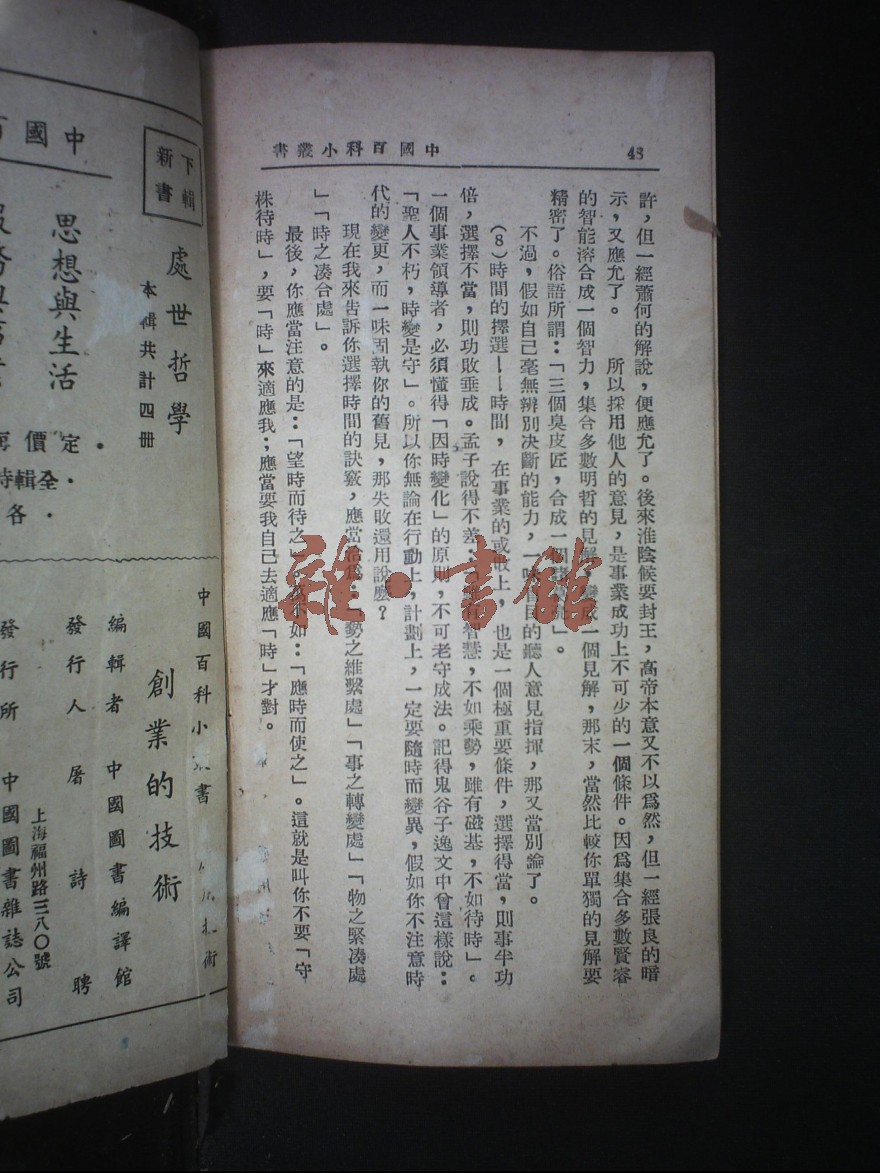 48
中國百科小叢書
許，但一經蕭何的解說，便應允了。後來淮陰候要封王，高帝本意又不以爲然，但一經張良的暗
示，又應允了。　所以採用他人的意見，是事業成功上不可少的一個條件。因爲集合多數賢睿
的智能溶合成一個智力，集合多數明哲的見解，變成一個見解，那末，當然比較你單獨的見解要
精密了。俗語所謂：「三個臭皮匠，合成一個諸葛亮」。
不過，假如自己毫無辨別决斷的能力，一味目的聽人意見指揮，那又當別論了。
(8)時間的擇選——時間，在事業的成敗上，也是一個極重要條件，選擇得當，則事半功
倍，選擇不當，則功敗垂成。孟子說得不差：雖有智慧，不如乘勢，雖有磁基，不如待時」。
一個事業領導者，必須懂得「因時變化」的原則，不可老守成法。記得鬼谷子逸文中曾這樣說：
「聖人不朽，時變是守」。所以你無論在行動上，計劃上，一定要隨時而變異，假如你不注意時
代的變更，而一味固執你的舊見，那失敗還用說麽？
現在我來告訴你選擇時間的訣竅，應當：「勢之維繫處」「事之轉變處」「物之緊凑處
」「時之凑合處」。
最後，你應當注意的是：「望時而待之」。不如：「應時而使之」。這就是叫你不要「守
株待時」，要「時」來適應我；應當要我自己去適應「時」才對。
中國
下輯
新書
處世哲學
本輯共計四册
思想與生活
定價
全輯
各
中國百科小書
創業的技術
編輯者　中國圖書編譯館
發行人　屠詩聘
上海福州路三八〇號
發行所　中國圖書雜誌公司
雜·書館